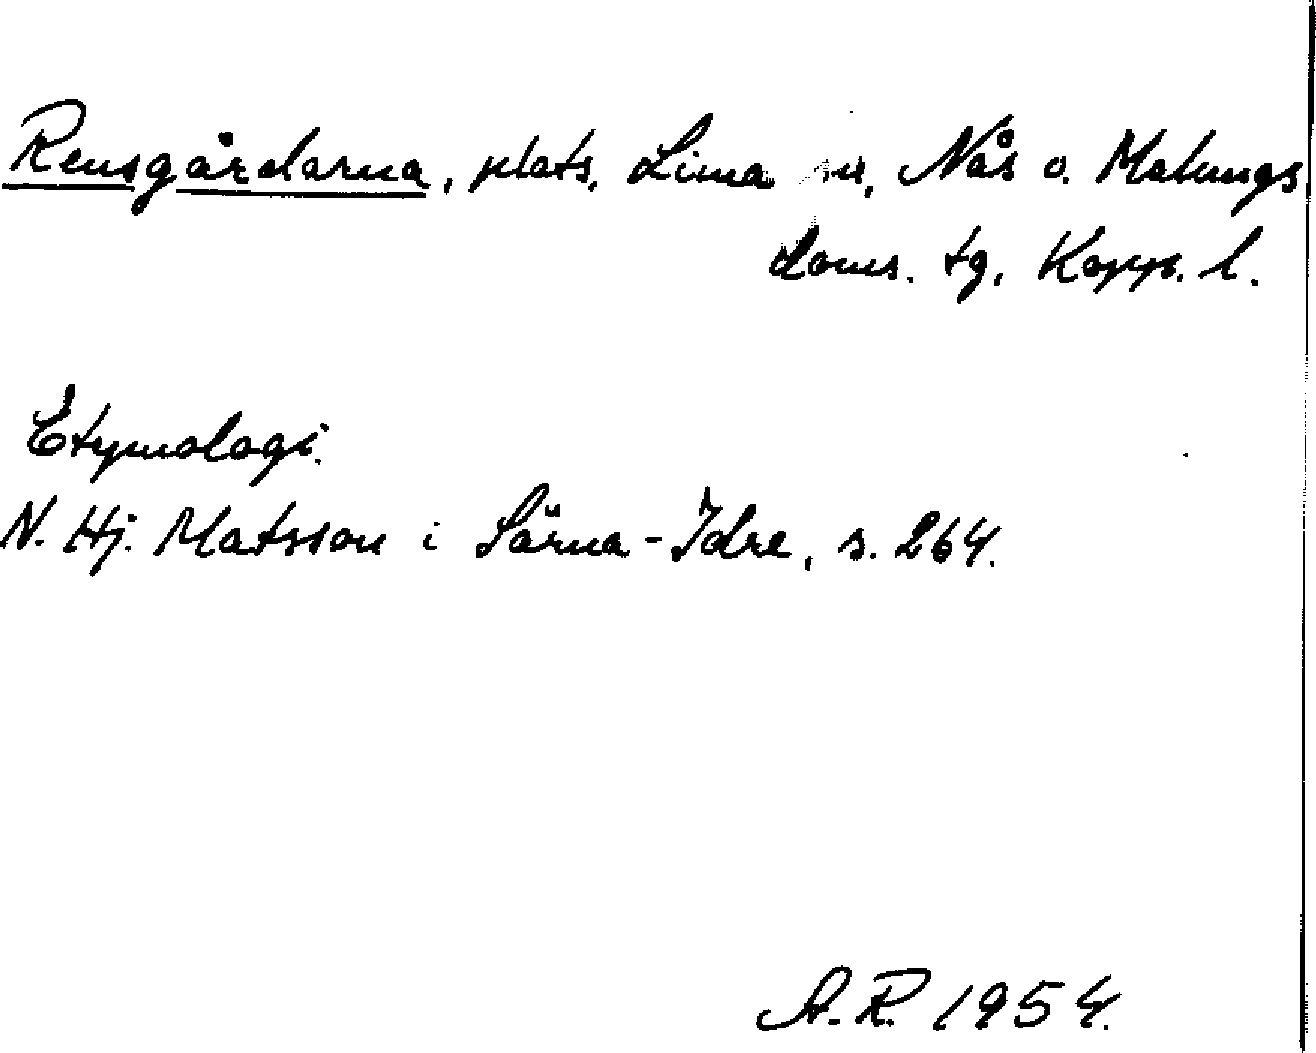 Rensgårdarna, plats, Lima sn, Nås o. Malungs
doms. tg, Kopp. l.
Etymologi.
N. Hj. Matsson i Särna-Idre, s. 264.
A.R. 1954.